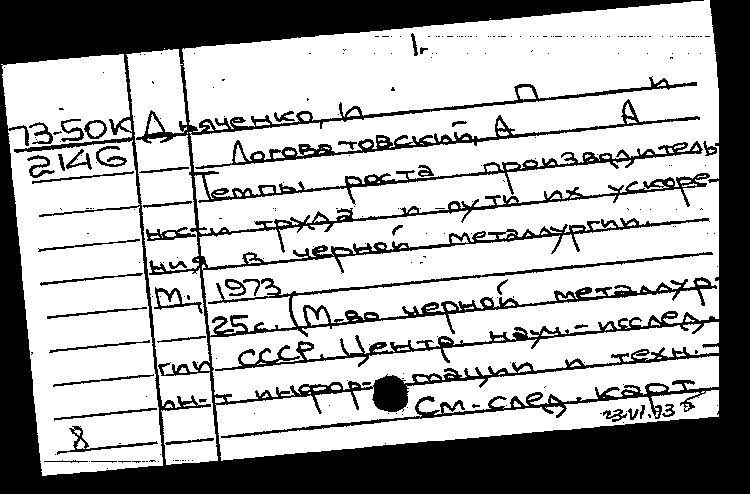 1.
73-50К Дьяченко, И П и
2146 Логоватовский, А А
Темпы роста производитель-
ности труда и пути их ускоре-
ния в черной металлургии.
М., 1973.
25 с. (М-во черной металлур-
гии СССР. Центр. науч.-исслед.
ин-т информации и техн.-
См. след. карт.
8 23.VI.73